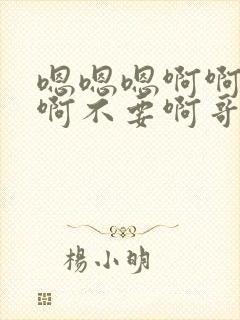 嗯嗯嗯啊啊
啊不要啊哥
楊小明